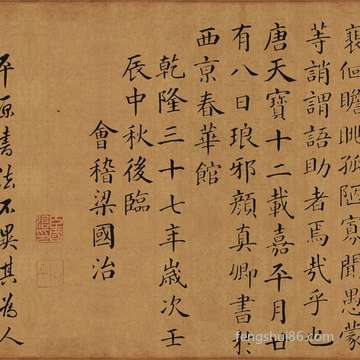 裵佪瞻眺孤陋寡聞愚蒙
等誚謂語助者焉哉乎也
唐天寶十二載嘉平月廿
有八日琅邪顏真卿書於
西京春華館
乾隆三十七年歲次壬
辰中秋後臨
會稽梁國治
平原書法不異其為人
fengshui86.com